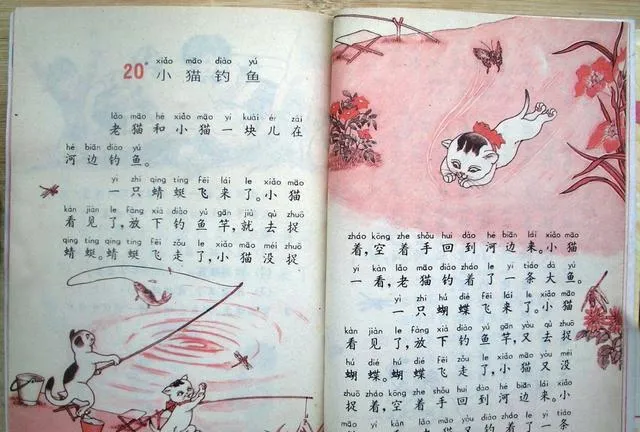 xiǎo māo diào yú
20* 小猫钓鱼
lǎo māo hé xiǎo māo yí kuài ér zài
老猫和小猫一块儿在
hé biān diào yú
河边钓鱼。
yì zhī qīng tíng fēi lái le xiǎo māo
一只蜻蜓飞来了。小猫
kàn jiàn le fàng xià diào yú gān jiù qù zhuō
看见了,放下钓鱼竿,就去捉
qīng tíng qīng tíng fēi zǒu le xiǎo māo méi zhuō
蜻蜓。蜻蜓飞走了,小猫没捉
zháo kōng zhe shǒu huí dào hé biān lái xiǎo māo
着,空着手回到河边来。小猫
yí kàn lǎo māo diào zháo le yì tiáo dà yú
一看,老猫钓着了一条大鱼。
yì zhī hú dié fēi lái le xiǎo māo
一只蝴蝶飞来了。小猫
kàn jiàn le fàng xià diào yú gān yòu qù zhuō
看见了,放下钓鱼竿,又去捉
hú dié hú dié fēi zǒu le xiǎo māo yòu méi
蝴蝶。蝴蝶飞走了,小猫又没
zhuō zháo kōng zhe shǒu huí dào hé biān lái xiǎo
捉着,空着手回到河边来。小
māo yí kàn lǎo māo yòu diào zháo le yì tiáo
猫一看,老猫又钓着了一条